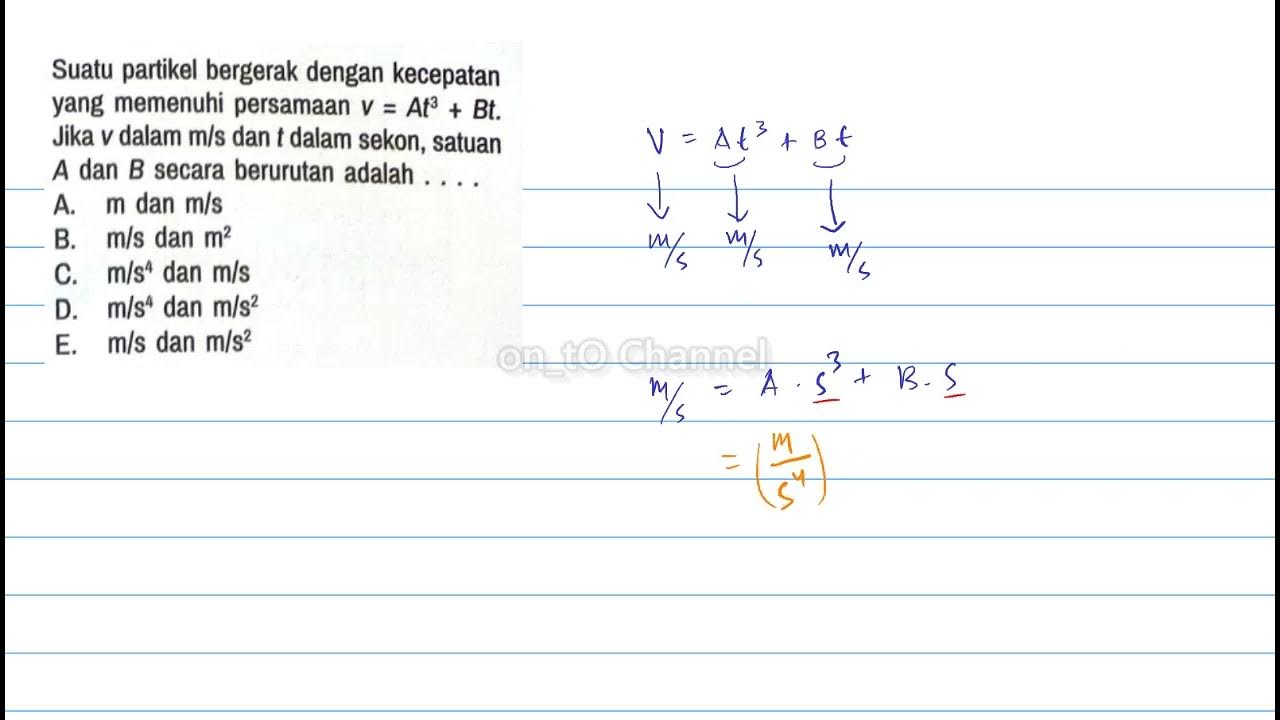 Suatu partikel bergerak dengan kecepatan
yang memenuhi persamaan v = At³ + Bt.
Jika v dalam m/s dan t dalam sekon, satuan
A dan B secara berurutan adalah . . . .
A. m dan m/s
B. m/s dan m²
C. m/s⁴ dan m/s
D. m/s⁴ dan m/s²
E. m/s dan m/s²
V = At³ + Bt
m/s m/s m/s
on_tO Channel
m/s = A . s³ + B . s
= (m/s⁴)